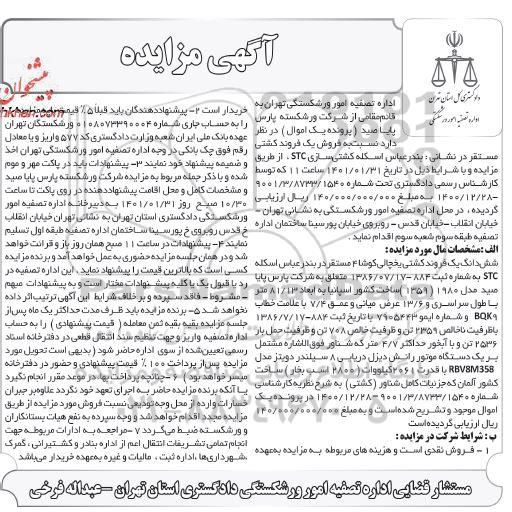 آگهی مزایده
دادگستری کل استان تهران
اداره تصفیه امور ورشکستگی تهران
پیشخوان
اداره تصفیه امور ورشکستگی تهران به
قائم‌مقامی از شرکت ورشکسته پارس
پایا صید (پرونده یک اموال) در نظر
دارد نسبت به فروش یک فروند کشتی
مستقر در نشانی: بندرعباس اسکله کشتی‌سازی STC، از طریق
مزایده و با شرایط ذیل در تاریخ ۱۴۰۱/۰۱/۳۱ ساعت ۱۱ که توسط
کارشناس رسمی دادگستری تحت شماره ۹۰۰۱/۳/۸۷۳۳/۱۵۴۰
-۱۴۰۰/۱۲/۲۸ به مبلغ ۱۴۰/۰۰۰/۰۰۰/۰۰۰ ریال ارزیابی
گردیده، در محل اداره تصفیه امور ورشکستگی به نشانی تهران-
خیابان انقلاب-خیابان قدس- روبروی خیابان پورسینا ساختمان اداره
تصفیه طبقه سوم شعبه سوم اقدام نماید.
الف: مشخصات مال مورد مزایده:
شش دانگ یک فروند کشتی یخچالی کوشا۴ مستقر در بندرعباس اسکله
STC به شماره ثبت ۸۸۴-۱۳۸۶/۰۷/۱۷ متعلق به شرکت پارس پایا
صید مدل ۱۹۸۰ م ساخت کشور اسپانیا به ابعاد ۸۱/۱۲ متر
با طول سراسری و ۱۳/۶ عرض میانی و عمق ۷/۴ با علامت خطاب
۹BQK و شماره ایمو ۷۹۰۵۴۴۳ با تاریخ ثبت ۸۸۴-۱۳۸۶/۷/۱۷
باظرفیت ناخالص ۲۳۵۹ تن و ظرفیت خالص ۷۰۸ تن و ظرفیت حمل بار
۲۵۳۶ تن و با آبخور حداکثر ۴/۷ متر که شناور فوق‌الاشاره مشتمل
بر یک دستگاه موتور رانش دیزل دریایی ۸ سیلندر دویتز مدل
RBV8M358 با قدرت ۲۰۶۱ کیلووات (۲۸۰۰ اسب بخار) ساخت
کشور آلمان که جزئیات کامل شناور (کشتی) به شرح نظریه کارشناسی
شماره ۹۰۰۱/۳/۸۷۳۳/۱۵۴۰-۱۴۰۰/۱۲/۲۸ در پرونده یک
اموال موجود و تشریح شده است و به مبلغ ۱۴۰/۰۰۰/۰۰۰/۰۰۰
ریال ارزیابی گردیده است
ب: شرایط شرکت در مزایده:
۱- فروش نقدی است و هزینه های مربوطه به مزایده به عهده
خریدار است ۲- پیشنهاددهندگان باید قبلاً ۵٪ قیمت پایه مزایده
را به حساب جاری شماره ۰۱۰۸۰۷۳۳۹۰۰۰۴ ورشکستگان تهران
عهده بانک ملی ایران شعبه وزارت دادگستری کد ۵۷۷ واریز و یا معادل
رقم فوق چک بانکی در وجه اداره تصفیه امور ورشکستگی تهران اخذ
و ضمیمه پیشنهاد خود نمایند ۳- پیشنهادات باید در پاکت مهر و موم
شده و با ذکر جمله مربوط به مزایده شرکت ورشکسته پارس پایا صید
و مشخصات کامل و محل اقامت پیشنهاددهنده در روی پاکت تا ساعت
۱۰/۳۰ صبح روز ۱۴۰۱/۰۱/۳۱ به دبیرخانه اداره تصفیه امور
ورشکستگی دادگستری استان تهران به نشانی تهران خیابان انقلاب
خ قدس روبروی خ پورسینا ساختمان اداره تصفیه طبقه اول تسلیم
نمایند ۴- پیشنهادات در ساعت ۱۱ صبح همان روز باز و قرائت خواهد
شد و در همان جلسه مزایده حضوری به عمل خواهد آمد و برنده مزایده
کسی است که بالاترین قیمت را پیشنهاد نماید. این اداره تصفیه در
رد یا قبول یک یا کلیه پیشنهادات مختار است و به پیشنهادات مبهم
- مشروط - فاقد سپرده و بر خلاف شرایط این آگهی ترتیب اثر داده
نخواهد شد ۵- برنده مزایده باید ظرف مدت حداکثر یک ماه پس از
جلسه مزایده بقیه ثمن معامله (قیمت پیشنهادی) را به حساب
اداره تصفیه واریز و جهت تنظیم سند انتقال قطعی در دفترخانه اسناد
رسمی تعیین‌شده از سوی اداره حاضر شود (بدیهی است تحویل مورد
مزایده پس از پرداخت ۱۰۰٪ قیمت پیشنهادی و حضور در دفترخانه
میسر خواهد بود) ۶- چنانچه پرداخت در موعد مقرر انجام نگیرد
یا آنکه برنده مزایده حاضر به اجرای تعهد خود نگردد علاوه بر جبران
خسارات وارده از محل وجه تودیعی نسبت فروش مورد مزایده از طریق
مزایده مجدد اقدام خواهد شد و وجه سپرده به نفع هیات بستانکاران
و ورشکسته ضبط می‌گردد ۷- مراجعه به ادارات مربوطه جهت
انجام تمامی تشریفات انتقال اعم از اداره بنادر و کشتیرانی، گمرک
شهرداری‌ها، اداره ثبت، مالیات و غیره به عهده خریدار می‌باشد.
مستشار قضایی اداره تصفیه امور ورشکستگی دادگستری استان تهران -عبداله فرخی